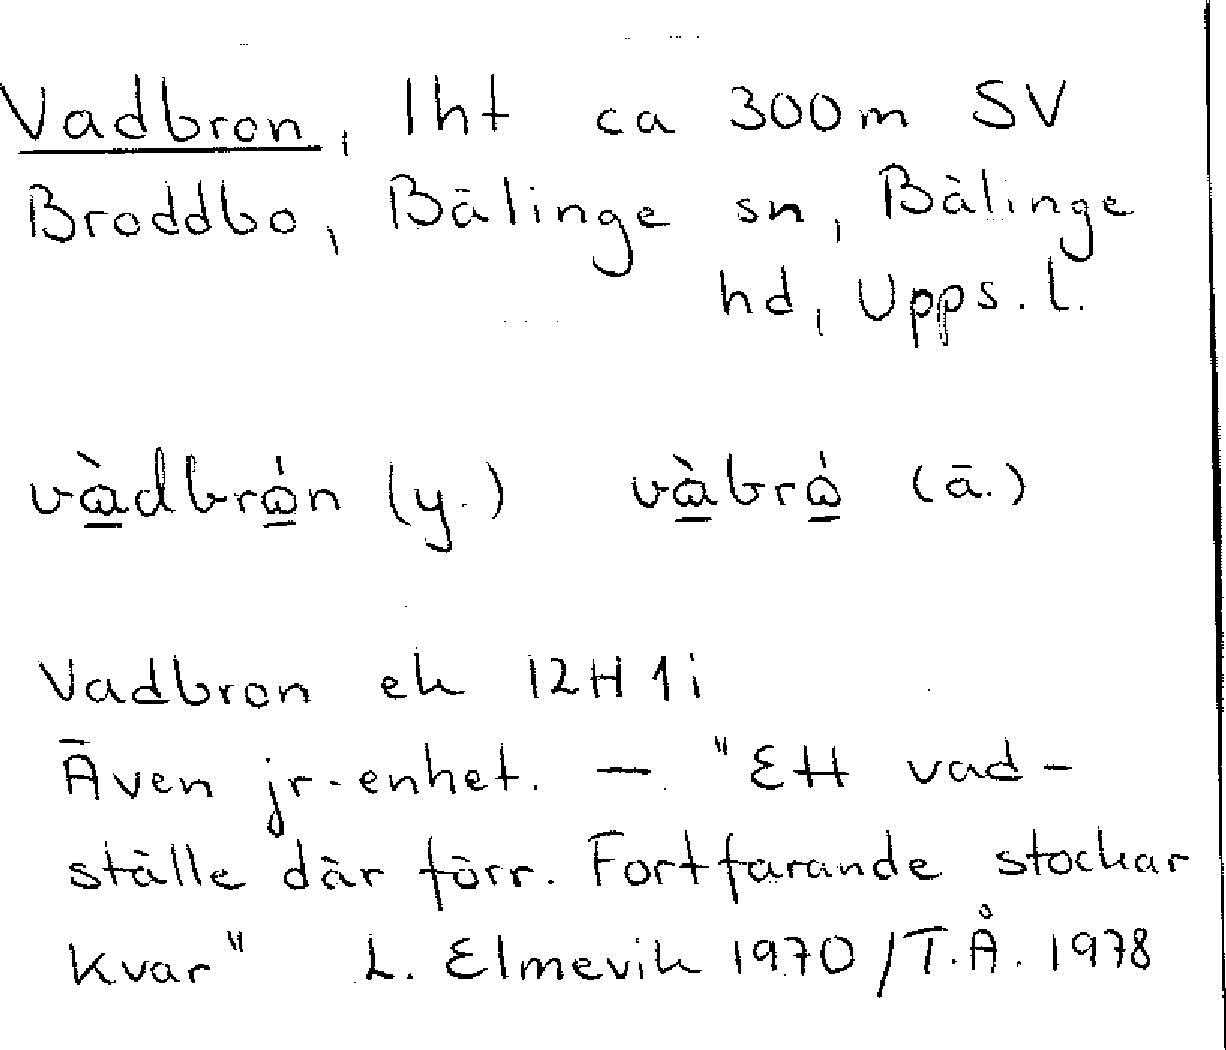 Vadbron, lht ca 300 m SV
Broddbo, Bälinge sn, Bälinge
hd, Upps. l.
và̱dbrȧ̱n (y.) và̱brȧ̱ (ä.)
Vadbron ek 12H 1i
Även jr-enhet. — "Ett vad-
ställe där förr. Fortfarande stockar
kvar" L. Elmevik 1970/T.Å. 1978